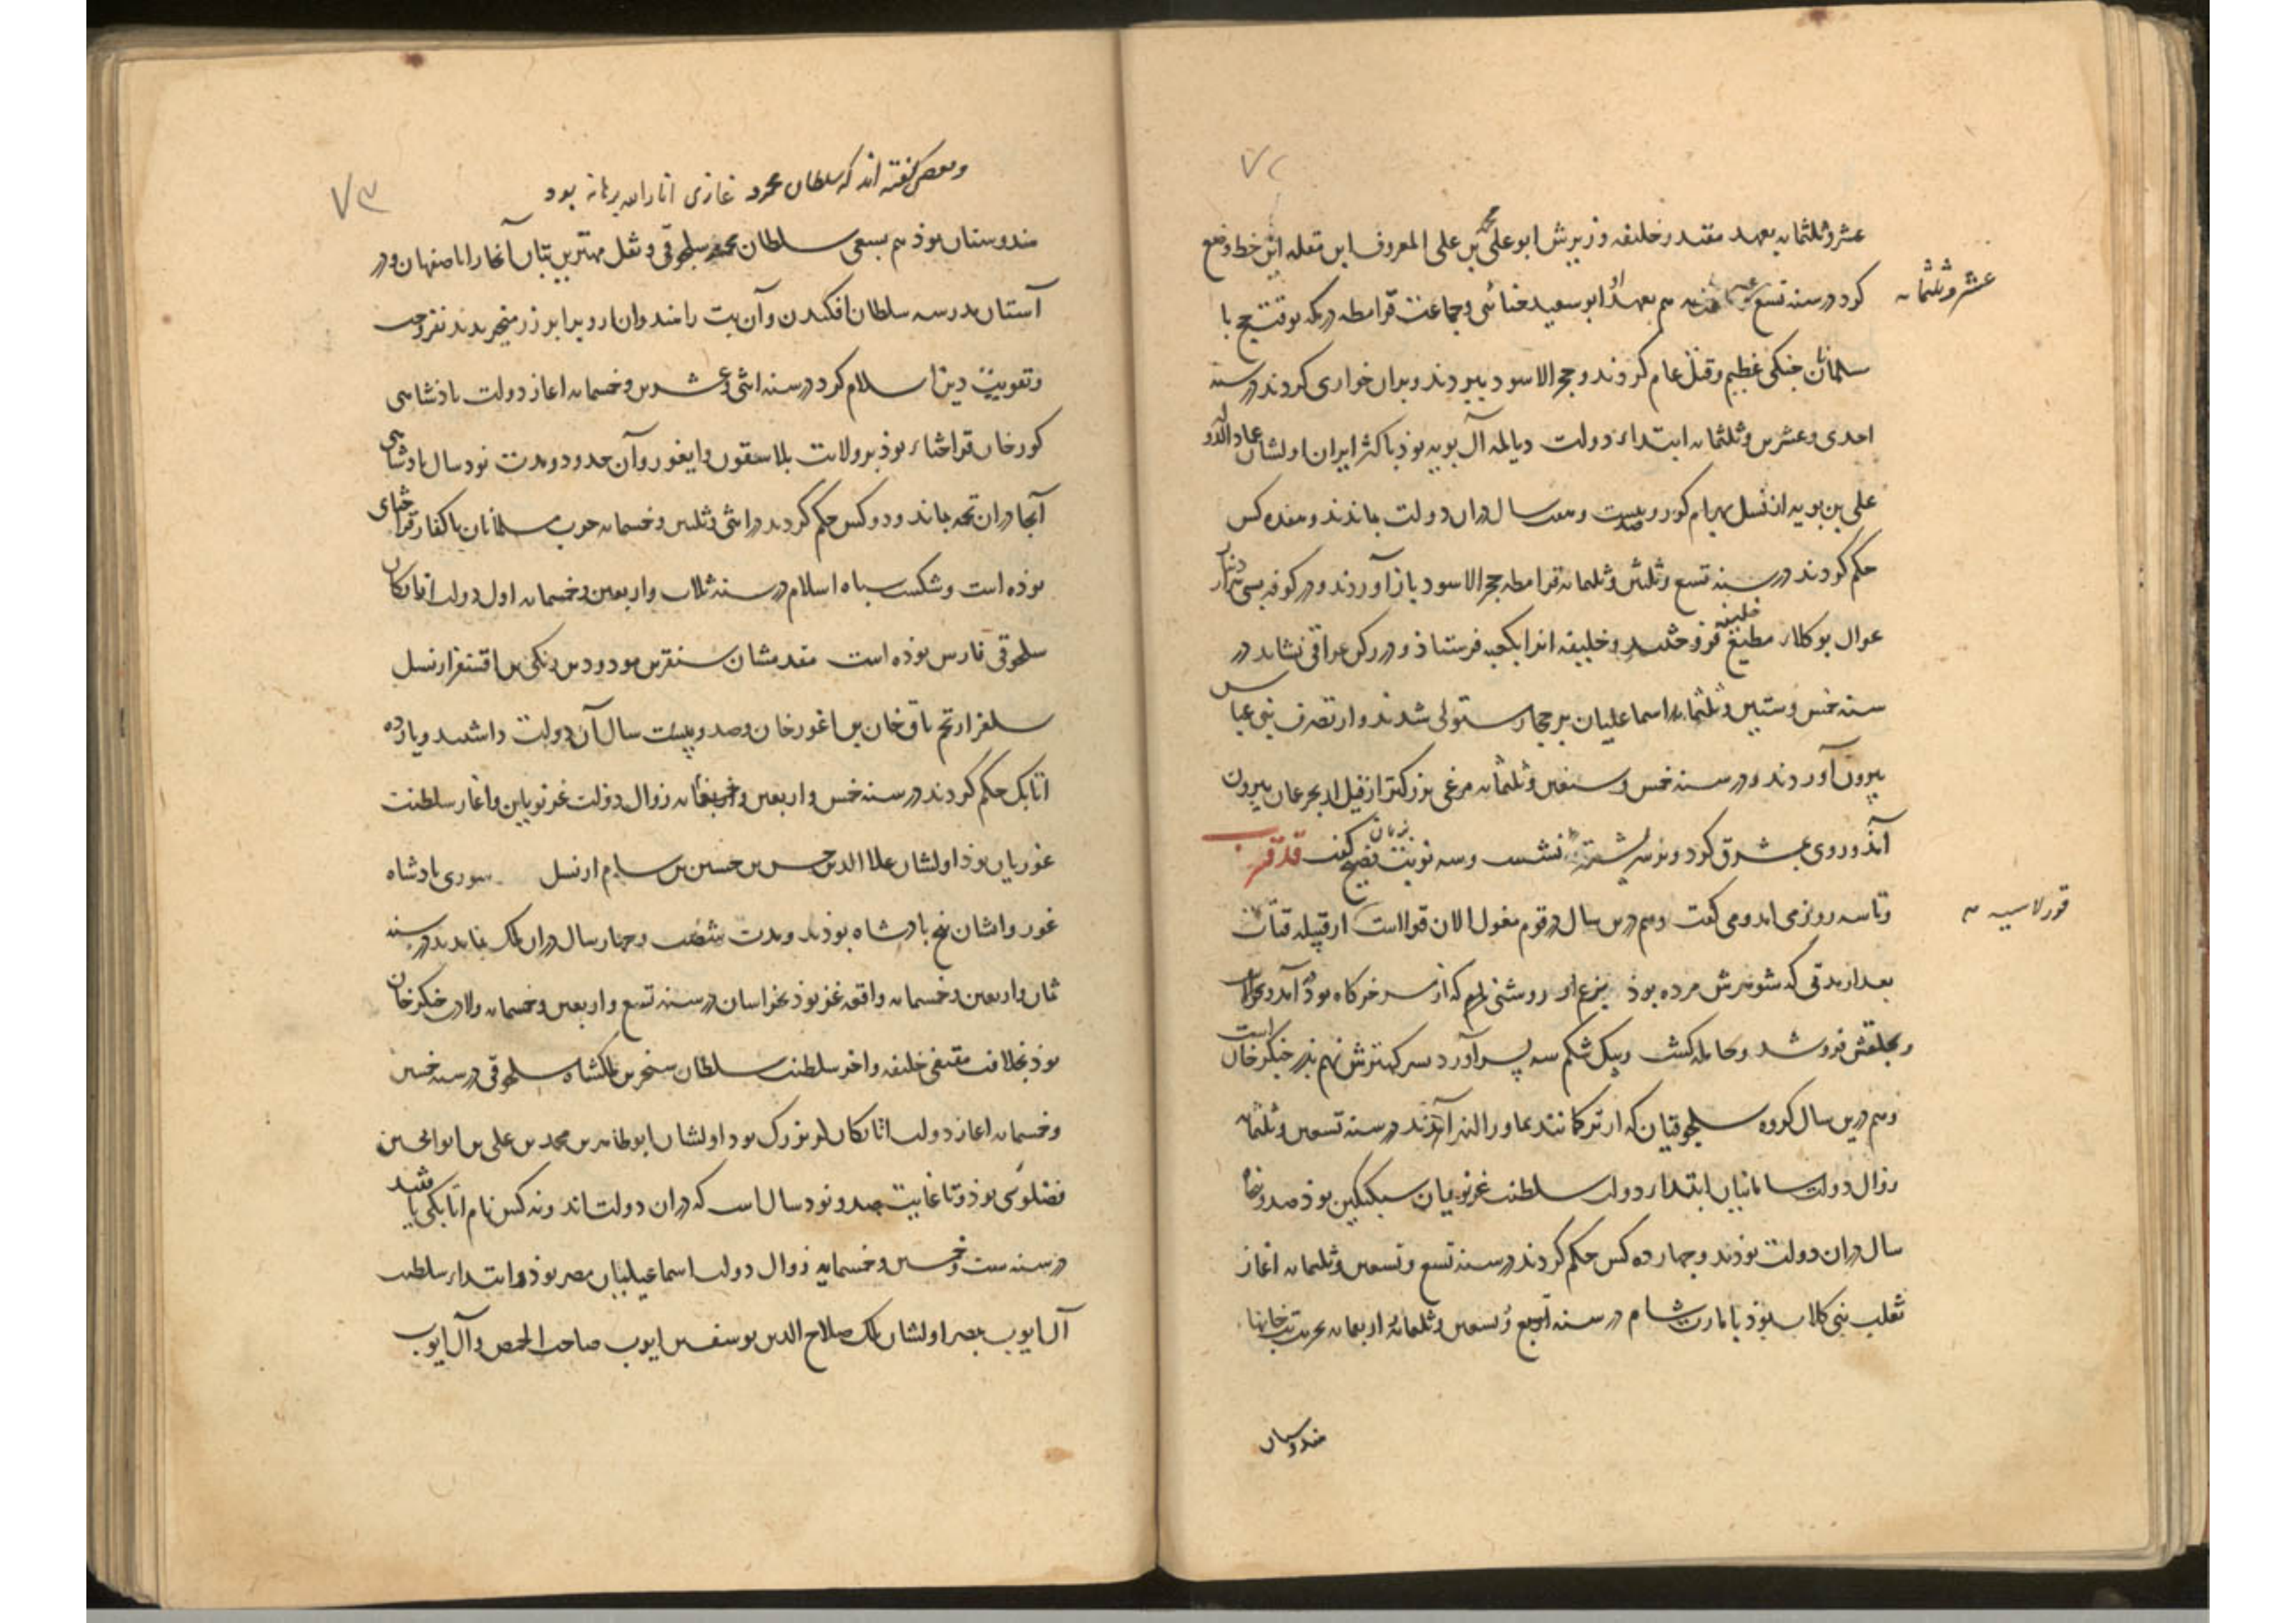 ٧٢
عشر و ثلثمایه بعهد مقتدر خلیفه وزیرش ابو علی محمد بن علی المعروف ابن مقله این خط وضع
کرد در سنه تسع هم بعهد او ابو سعید جنائی و جماعت قرامطه در مکه بوقت حج با
عشر و ثلثمایه
سلمانان جنکی عظیم و قتل عام کردند و حجر الاسود ببردند و بران خواری کردند در سنه
احدی و عشرین و ثلثمایه ابتداء دولت دیالمه آل بویه بوذ باکثر ایران اولشان عماد الدوله
علی بن بویه از نسل بهرام کور و صد و بیست و هفت سال دران دولت بماندند و هفده کس
حکم کردند در سنه تسع و ثلثین و ثلثمایه قرامطه حجر الاسود باز آوردند و در کوفه بسی هزار دینار
بوکلاء مطیع خلیفه فروختند و خلیفه انرا بکعبه فرستاذ و در رکن عراقی نشاند در
سنه خمس و ستین و ثلثمایه اسماعلیان بر حجاز مستولی شدند و از تصرف بنی عباس
بیرون آوردند و در سنه خمس و سبعین و ثلثمایه مرغی بزرکتر از فیل از بحر عمان بیرون
آمذ و روی بمشرق کرد و بر سر پشته نشست و سه نوبت بزبان فصیح کفت قد قرب
و تا سه روز می امد و می کفت و هم درین سال در قوم مغول الان قوا از قبیله قیات
قورلاسیه
بعد از مدتی که شوهرش مرده بوذ بزعم او روشنی که از سر خرکاه بوذ در آمد
و بحلقش فرو شد و حامله کشت و بیک شکم سه پسر آورد پسر کهترش نهم پدر جنکز خان است
و هم درین سال کروه سلجوقیان که از ترکانند بماورا النهر آمذند در سنه تسعین و ثلثمایه
زوال دولت سامانیان ابتداء دولت سلطنت غزنویان سبکتکین بوذ صد و پنجاه
سال دران دولت بوذند و چهارده کس حکم کردند در سنه تسع و تسعین و ثلثمایه اغاز
ثعلب بنی کلاب بوذ بامارت شام در سنه اربعمایه تخریب بتخانها
هندوستان
٧٣
و بعضی کفته اند که سلطان محمود غازی انار الله برهانه بود
هندوستان بوذ هم بسعی سلطان محمد سلجوقی و نقل مهترین بتان آنجا را باصفهان و در
آستان مدرسه سلطان افکندن و آن بت را هندوان برابر زر میخریدند نفروخت
و تقویت دین اسلام کرد در سنه اثنی و عشرین و خمسمایه اغاز دولت باذشاهی
کورخان قراختاء بوذ بر ولایت بلاسقون و ایغور و آن حدود و مدت نود سال باذشاهی
آنجا دران تخمه بماند و دو کس حکم کردند در اثنی و ثلثین و خمسمایه حرب مسلمانان با کفار قراختای
بوذه است و شکست سپاه اسلام در سنه ثلاث و اربعین و خمسمایه اول دولت اتابکان
سلجوقی فارس بوذه است مقدمشان سنقر بن مودود بن زنکی بن اقسنقر از نسل
سلغر از تخم تاق خان بن اغورخان و صد و بیست سال آن دولت داشتند و یازده
اتابک حکم کردند در سنه خمس و اربعین و خمسمایه زوال دولت غزنویان و اغاز سلطنت
غوریان بوذ اولشان علاء الدین حسن بن حسین بن سام از نسل سوری پادشاه
غور و ایشان پنج پادشاه بوذند و مدت شصت و چهار سال دران ملک بماندند در سنه
ثمان و اربعین و خمسمایه واقعه غز بوذ بخراسان در سنه تسع و اربعین و خمسمایه ولادت جنکز خان
بوذ بخلافت مقتفی خلیفه و اخر سلطنت سلطان سنجر بن ملکشاه سلجوقی در سنه خمسین
و خمسمایه اغاز دولت اتابکان لر بزرک بود اولشان ابو طاهر بن محمد بن علی بن ابو الحسن
فضلوئی بوذ و تا غایت صد و نود سال است که دران دولت اند و نه کس نام اتابکی یافتند
در سنه ست و خمسین و خمسمایه زوال دولت اسماعیلیان مصر بوذ و ابتداء سلطنت
آل ایوب بمصر اولشان ملک صلاح الدین یوسف بن ایوب صاحب الحمص و آل ایوب